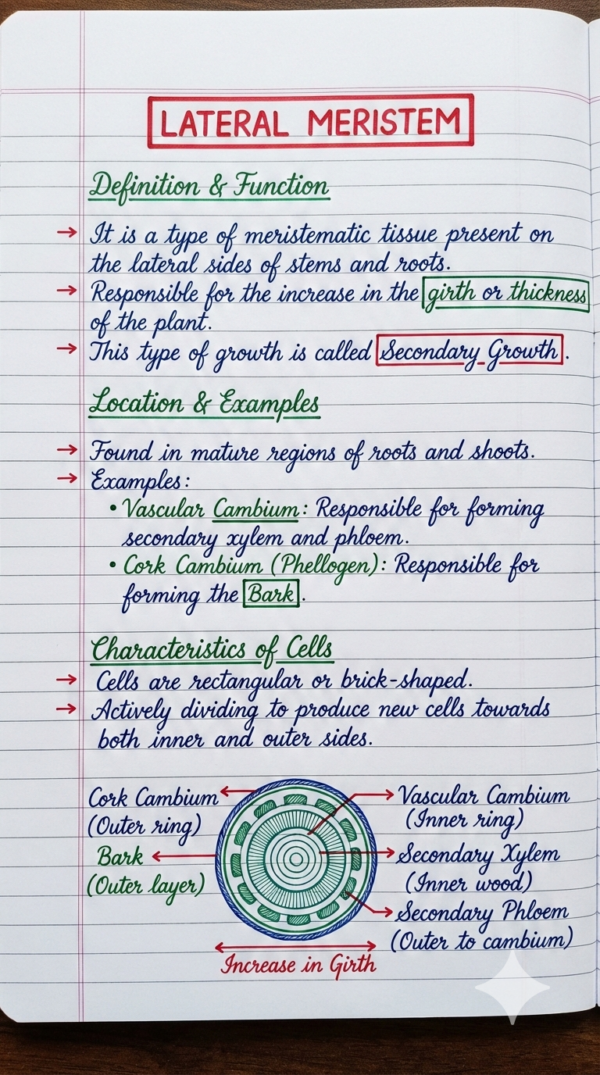 LATERAL MERISTEM
Definition & Function
→ It is a type of meristematic tissue present on
the lateral sides of stems and roots.
→ Responsible for the increase in the girth or thickness
of the plant.
→ This type of growth is called Secondary Growth.
Location & Examples
→ Found in mature regions of roots and shoots.
→ Examples:
• Vascular Cambium: Responsible for forming
secondary xylem and phloem.
• Cork Cambium (Phellogen): Responsible for
forming the Bark.
Characteristics of Cells
→ Cells are rectangular or brick-shaped.
→ Actively dividing to produce new cells towards
both inner and outer sides.
Cork Cambium
(Outer ring)
Bark
(Outer layer)
Vascular Cambium
(Inner ring)
Secondary Xylem
(Inner wood)
Secondary Phloem
(Outer to cambium)
Increase in Girth